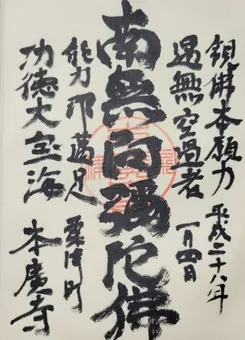 観佛本願力
遇無空過者
平成二十八年
一月四日
南無阿彌陀佛
能令速満足
功徳大宝海
本廣寺